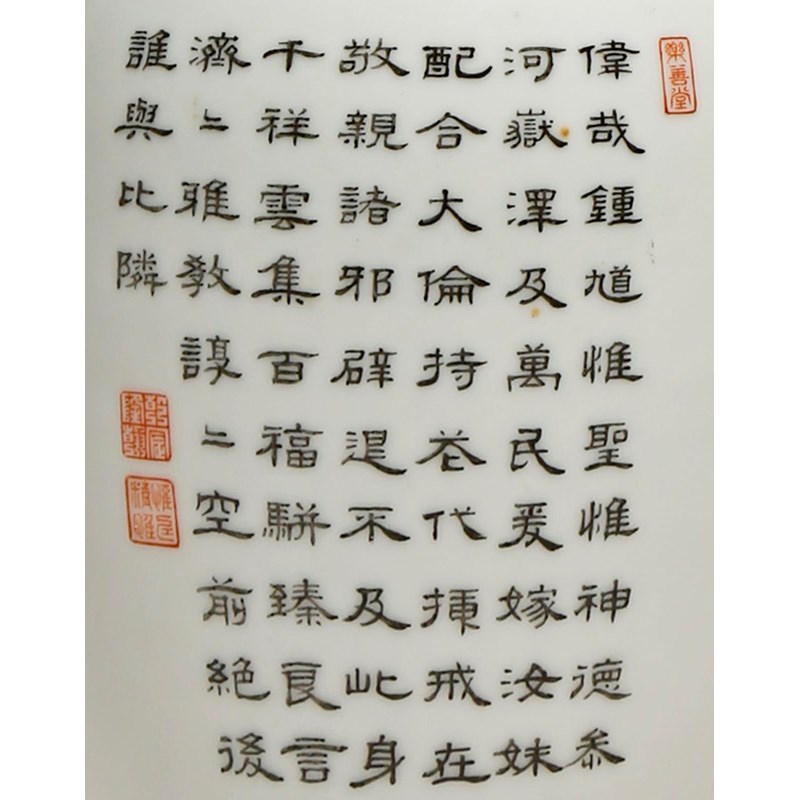 樂善堂
偉哉鍾馗惟聖惟神德叅
河嶽澤及萬民爰嫁汝妹
配合大倫持花代捶戒在
敬親諸邪辟退不及此身
千祥雲集百福駢臻良言
濟〻雅教諄〻空前絕後
誰與比隣
乾隆宸翰
惟精惟一